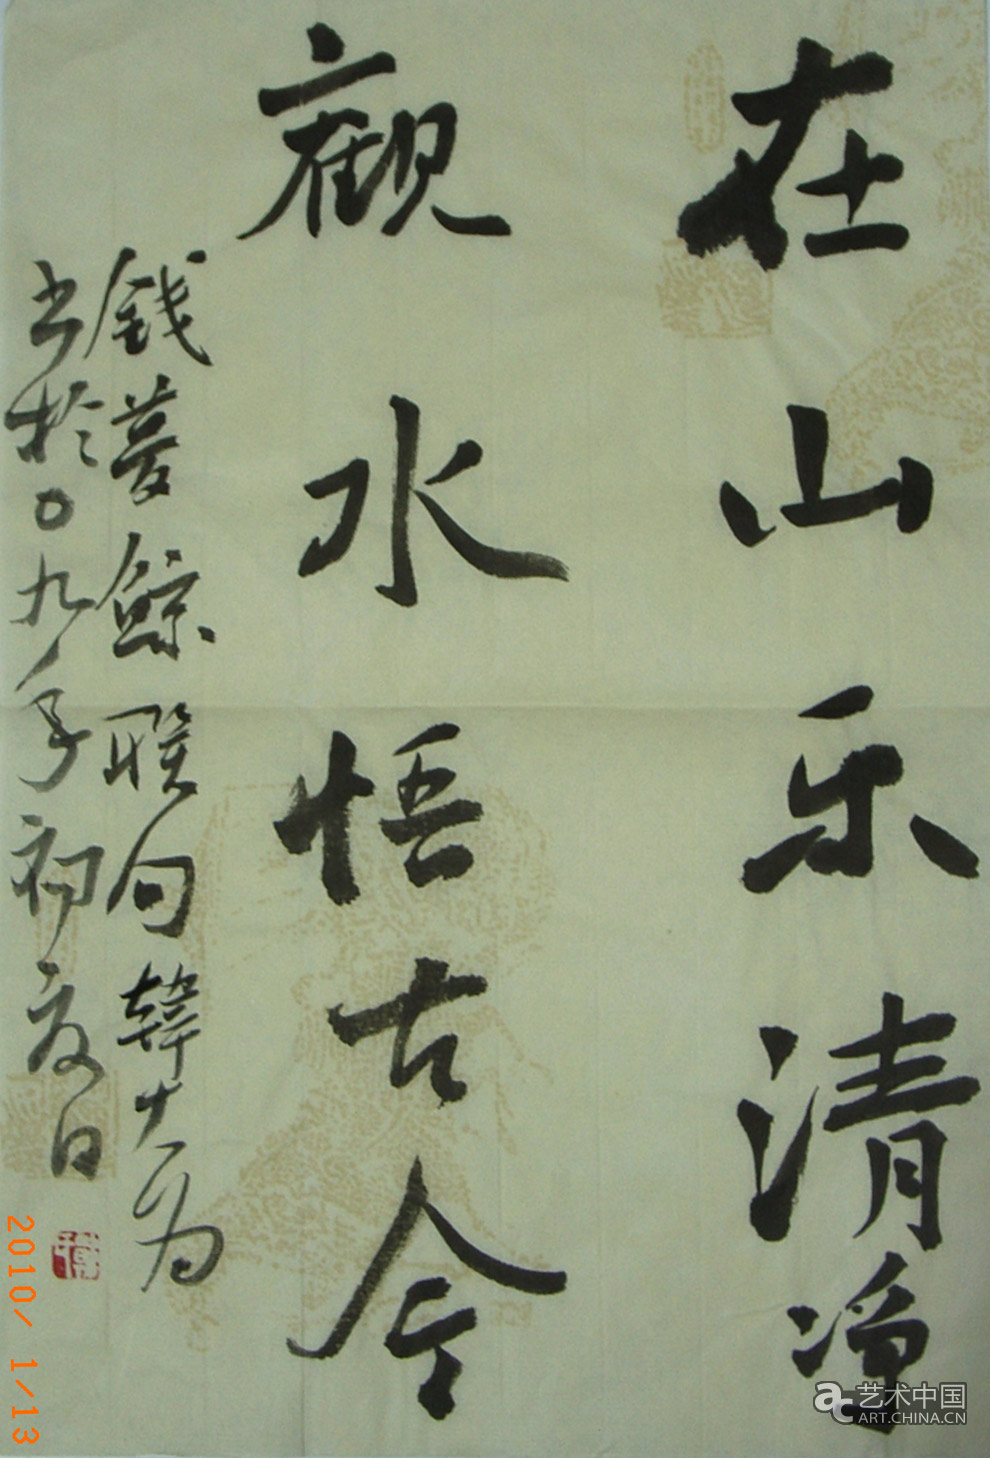 在山乐清净
觀水悟古今
钱夢鲸联句韓大为
书於〇九年初度日
2010/ 1/13
艺术中国
ART.CHINA.CN